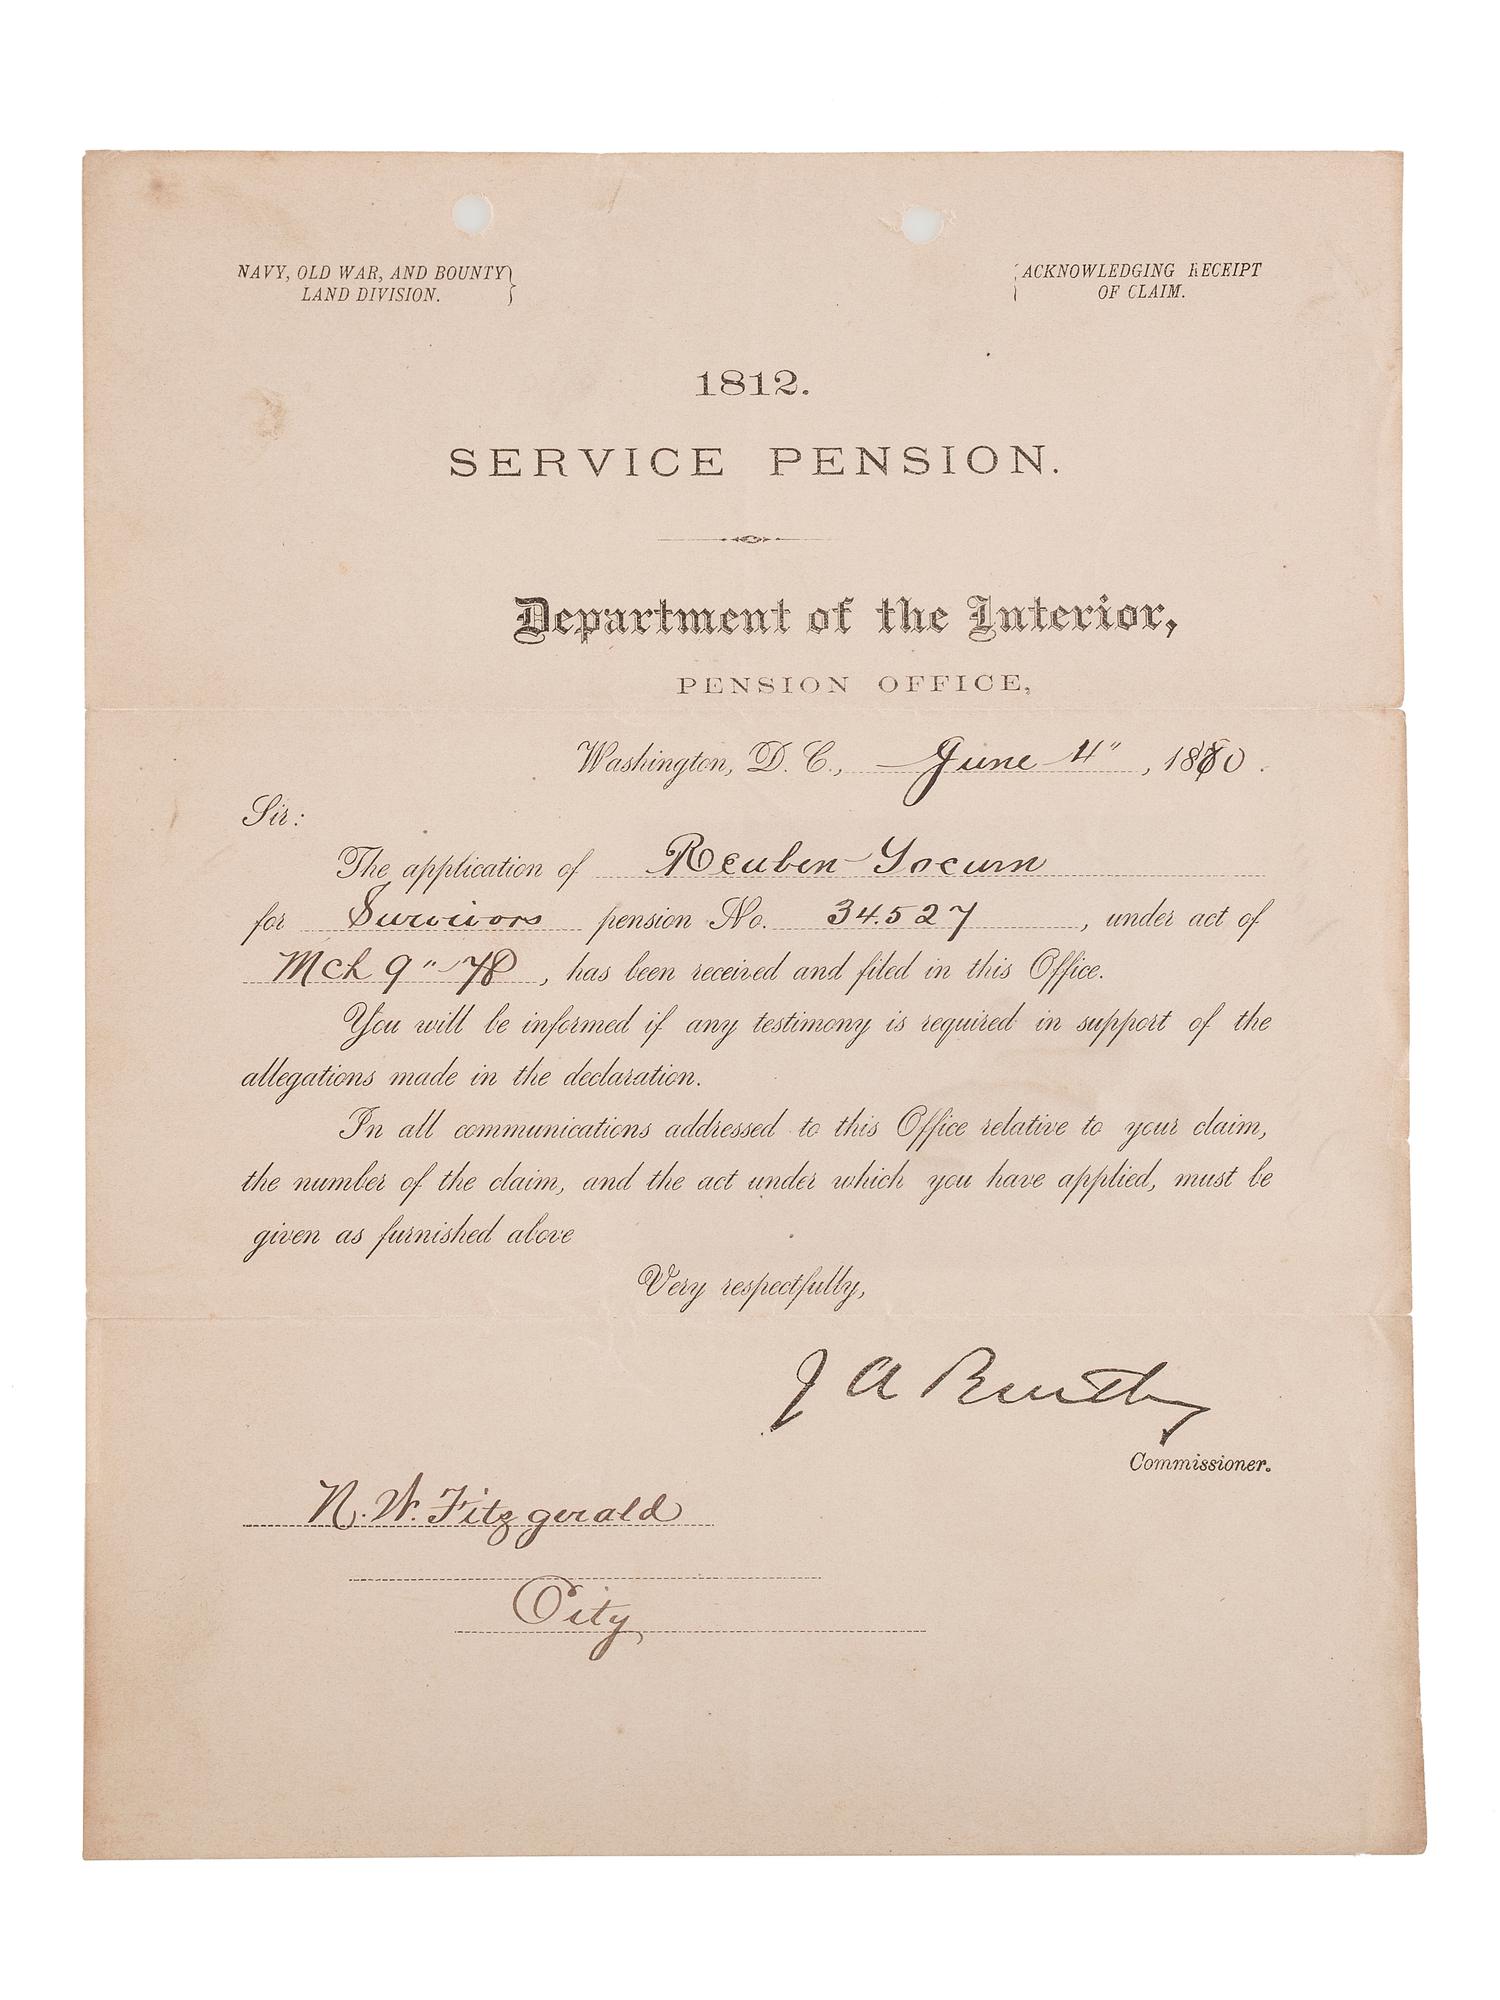 NAVY, OLD WAR, AND BOUNTY
LAND DIVISION.
ACKNOWLEDGING RECEIPT
OF CLAIM.
1812.
SERVICE PENSION.
Department of the Interior,
PENSION OFFICE,
Washington, D. C., June 4", 1880.
Sir:
The application of Reuben Yocum
for Survivors pension No. 34.527, under act of
Mch 9"-78, has been received and filed in this Office.
You will be informed if any testimony is required in support of the
allegations made in the declaration.
In all communications addressed to this Office relative to your claim,
the number of the claim, and the act under which you have applied, must be
given as furnished above
Very respectfully,
J A Bentley
Commissioner.
N. W. Fitzgerald
City